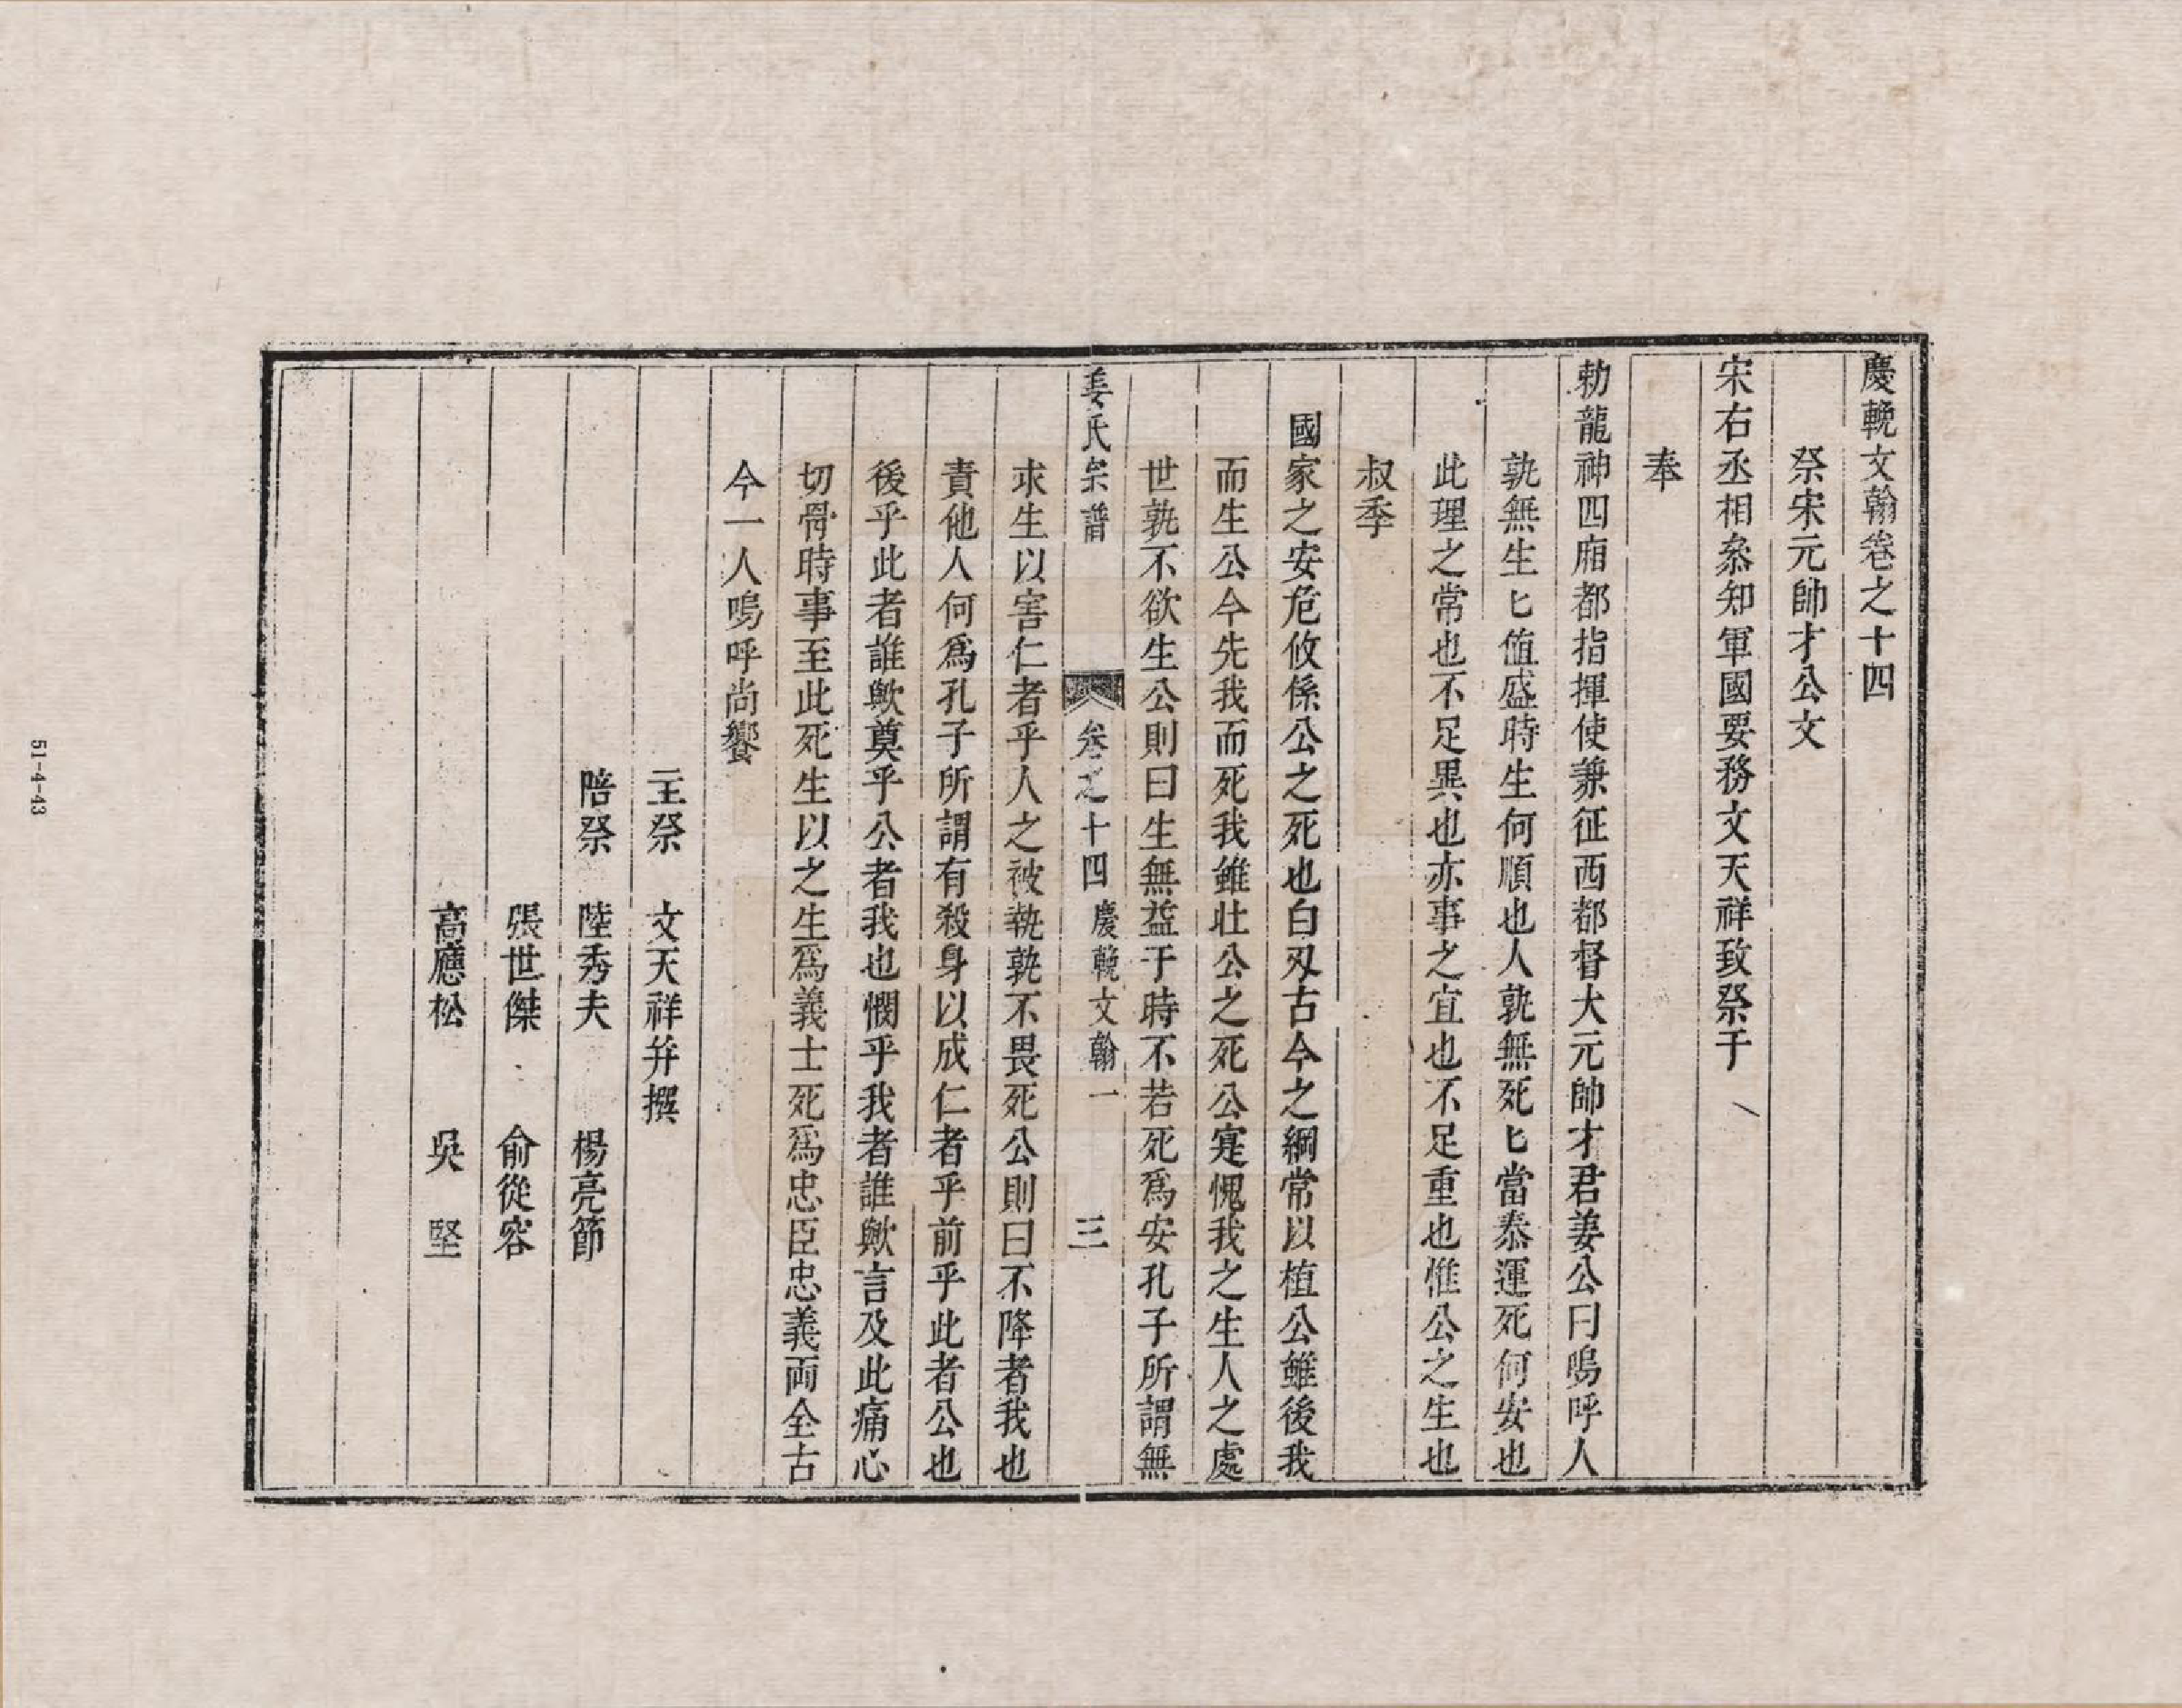 慶輓文翰卷之十四
祭宋元帥才公文
宋右丞相叅知軍國要務文天祥致祭于
奉
勅龍神四廂都指揮使兼征西都督大元帥才君姜公曰嗚呼人
孰無生匕值盛時生何順也人孰無死匕當泰運死何安也
此理之常也不足異也亦事之宜也不足重也惟公之生也
叔季
國家之安危攸係公之死也白刄古今之綱常以植公雖後我
而生公今先我而死我雖壯公之死公寔愧我之生人之處
世孰不欲生公則曰生無益于時不若死爲安孔子所謂無
姜氏宗譜 卷之十四 慶輓文翰一 三
求生以害仁者乎人之被執孰不畏死公則曰不降者我也
責他人何爲孔子所謂有殺身以成仁者乎前乎此者公也
後乎此者誰歟奠乎公者我也憫乎我者誰歟言及此痛心
切骨時事至此死生以之生爲義士死爲忠臣忠義両全古
今一人嗚呼尚饗
主祭 文天祥并撰
陪祭 陸秀夫 楊亮節
張世傑 俞從容
高應松 吳 堅
51-4-43